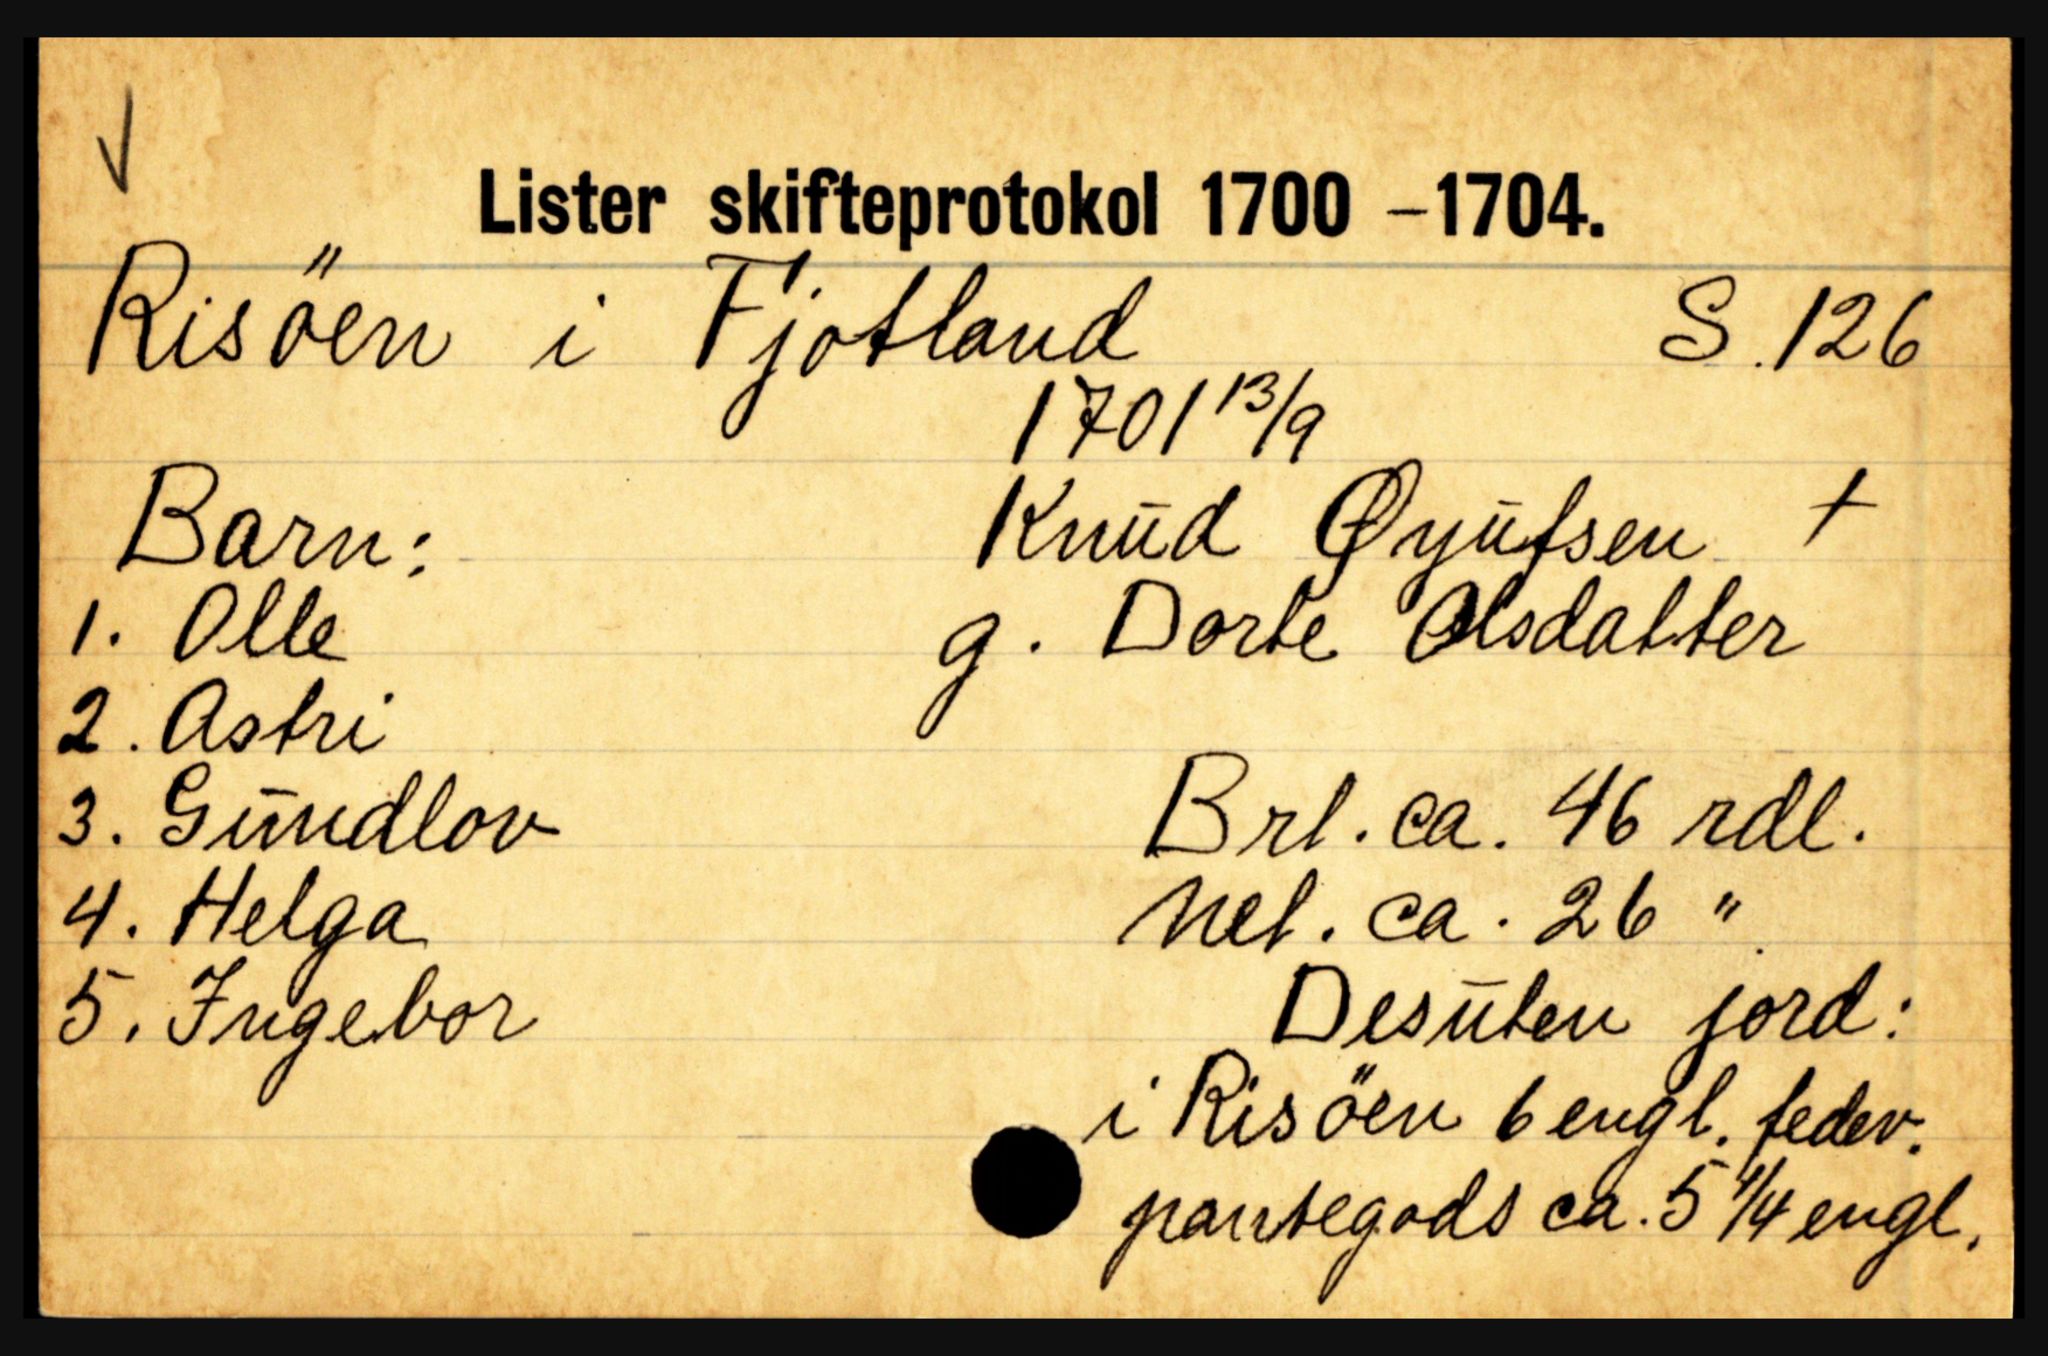 Lister skifteprotokol 1700 – 1704.
Risöen i Fjotland S. 126
1701 13/9
Barn:
Knud Øyufsen +
1. Olle
g. Dorte Olsdatter
2. Astri
3. Gundlov
Brt. ca. 46 rdl.
4. Helga
Net. ca. 26 "
5. Ingebor
Desuten jord:
i Risöen 6 engl. fedev.
pantegods ca. 5 1/4 engl.